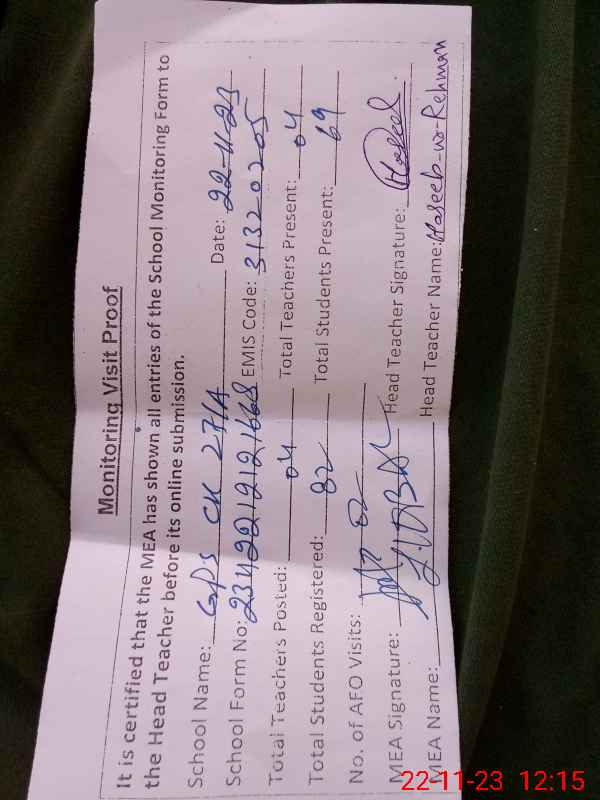 Monitoring Visit Proof
It is certified that the MEA has shown all entries of the School Monitoring Form to
the Head Teacher before its online submission.
School Name: GPS CK 27/A Date: 22-11-23
School Form No: EMIS Code: 31320205
Total Teachers Posted: 04 Total Teachers Present: 04
Total Students Registered: 82 Total Students Present: 69
No. of AFO Visits: 02
MEA Signature: Head Teacher Signature: Haseeb
MEA Name: Head Teacher Name: Haseeb-ur-Rehman
22-11-23 12:15